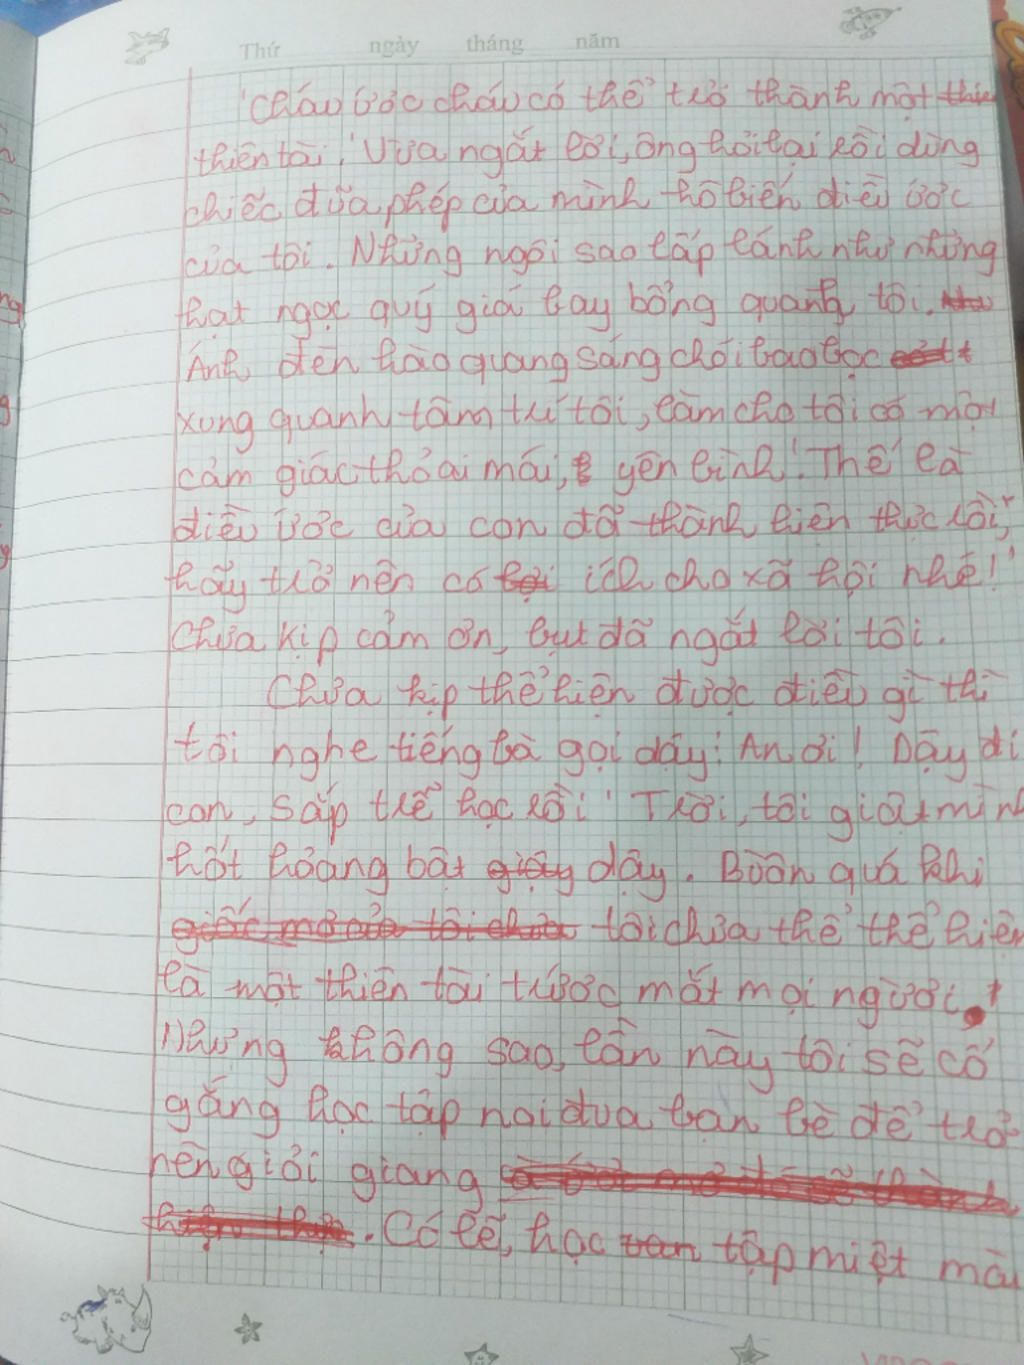 Thứ ngày tháng năm
"Cháu ước cháu có thể trở thành một
thiên tài." Vừa ngắt lời, ông hỏi lại rồi dùng
chiếc đũa phép của mình hô biến điều ước
của tôi. Những ngôi sao lấp lánh như những
hạt ngọc quý giá bay bổng quanh tôi.
Ánh đèn hào quang sáng chói bao bọc
xung quanh tâm trí tôi, làm cho tôi có một
cảm giác thỏai mái, yên bình "Thế là
điều ước của con đã thành hiện thực rồi,
hãy trở nên có ích cho xã hội nhé!"
Chưa kịp cảm ơn, bụt đã ngắt lời tôi.
Chưa kịp thể hiện được điều gì thì
tôi nghe tiếng bà gọi dậy: An ơi! Dậy đi
con, sắp trễ học rồi" Trời, tôi giật mình
hốt hoảng bật dậy. Buồn quá khi
tôi chưa thể thể hiện
là một thiên tài trước mắt mọi người.
Nhưng không sao, lần này tôi sẽ cố
gắng học tập noi đua bạn bè để trở
nên giỏi giang
. Có lẽ, học tập miệt mài